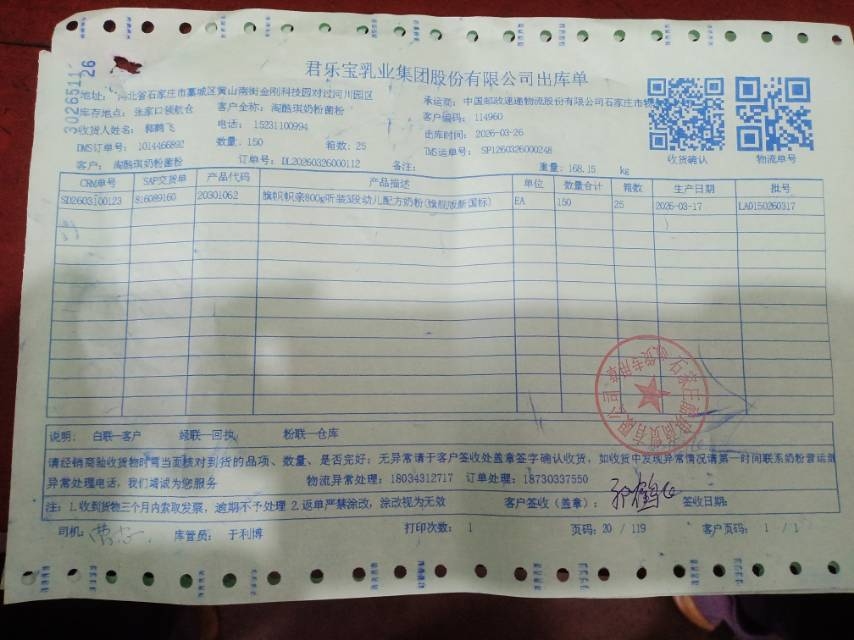 君乐宝乳业集团股份有限公司出库单
30265112
26
地址: 河北省石家庄市藁城区黄山南街金刚科技园对过河川园区
承运商: 中国邮政速递物流股份有限公司石家庄市物
库存地点: 张家口领航仓 客户全称: 淘酷琪奶粉菌粉 客户编码: 114960
收货人姓名: 郭鹤飞 电话: 15231100994 出库时间: 2026-03-26
DMS订单号: 1014466892 数量: 150 箱数: 25 TMS运单号: SP1260326000248
客户: 淘酷琪奶粉菌粉 订单号: DL20260326000112 备注: 重量: 168.15 kg
收货确认 物流单号
CRM单号 SAP交货单 产品代码 产品描述 单位 数量合计 箱数 生产日期 批号
SD2603100123 816089160 20301062 旗帜帜亲800g听装3段幼儿配方奶粉(旗舰版新国标) EA 150 25 2026-03-17 LA0150260317
说明: 白联—客户 绿联—回执 粉联—仓库
请经销商验收货物时需当面核对到货的品项、数量、是否完好; 无异常请于客户签收处盖章签字确认收货, 如收货中发现异常情况请第一时间联系奶粉营运部
异常处理电话, 我们竭诚为您服务 物流异常处理: 18034312717 订单处理: 18730337550
注: 1.收到货物三个月内索取发票, 逾期不予处理 2.返单严禁涂改, 涂改视为无效 客户签收(盖章): 签收日期:
司机: 库管员: 于利博 打印次数: 1 页码: 20 / 119 客户页码: 1 / 1